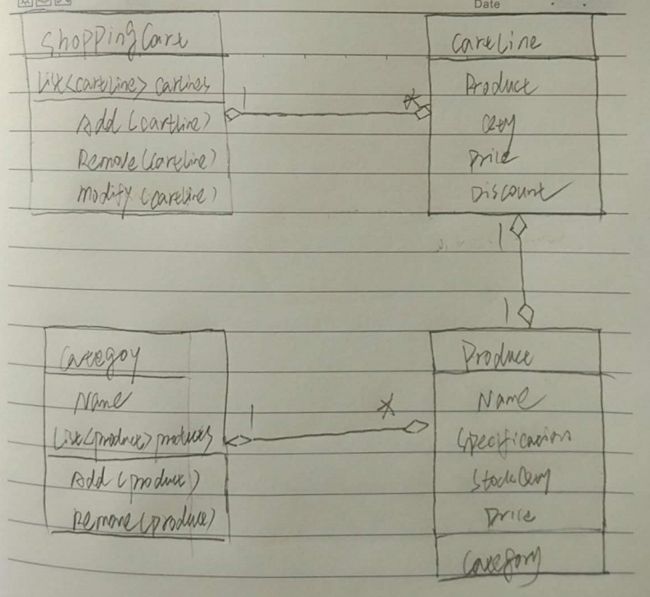 Date
ShoppingCart
List<cartline> carlines
Add (cartline)
Remove (cartline)
Modify (cartline)
1
*
CartLine
Product
Qty
Price
Discount
1
1
Categoy
Name
List<product> products
Add (product)
Remove (product)
1
*
Product
Name
Specification
StockQty
Price
Category